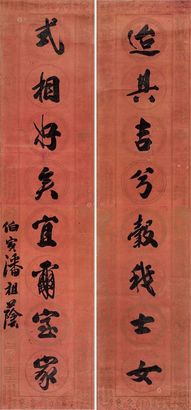 迨其吉兮穀我士女
式相好矣宜爾室家
伯寅潘祖蔭